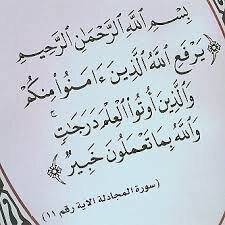 بِسْمِ اللَّهِ الرَّحْمَٰنِ الرَّحِيمِ
﴿ يَرْفَعِ اللَّهُ الَّذِينَ ءَامَنُوا مِنكُمْ
وَالَّذِينَ أُوتُوا الْعِلْمَ دَرَجَٰتٍ ۚ
وَاللَّهُ بِمَا تَعْمَلُونَ خَبِيرٌ ﴾
(سورة المجادلة الاية رقم ١١)